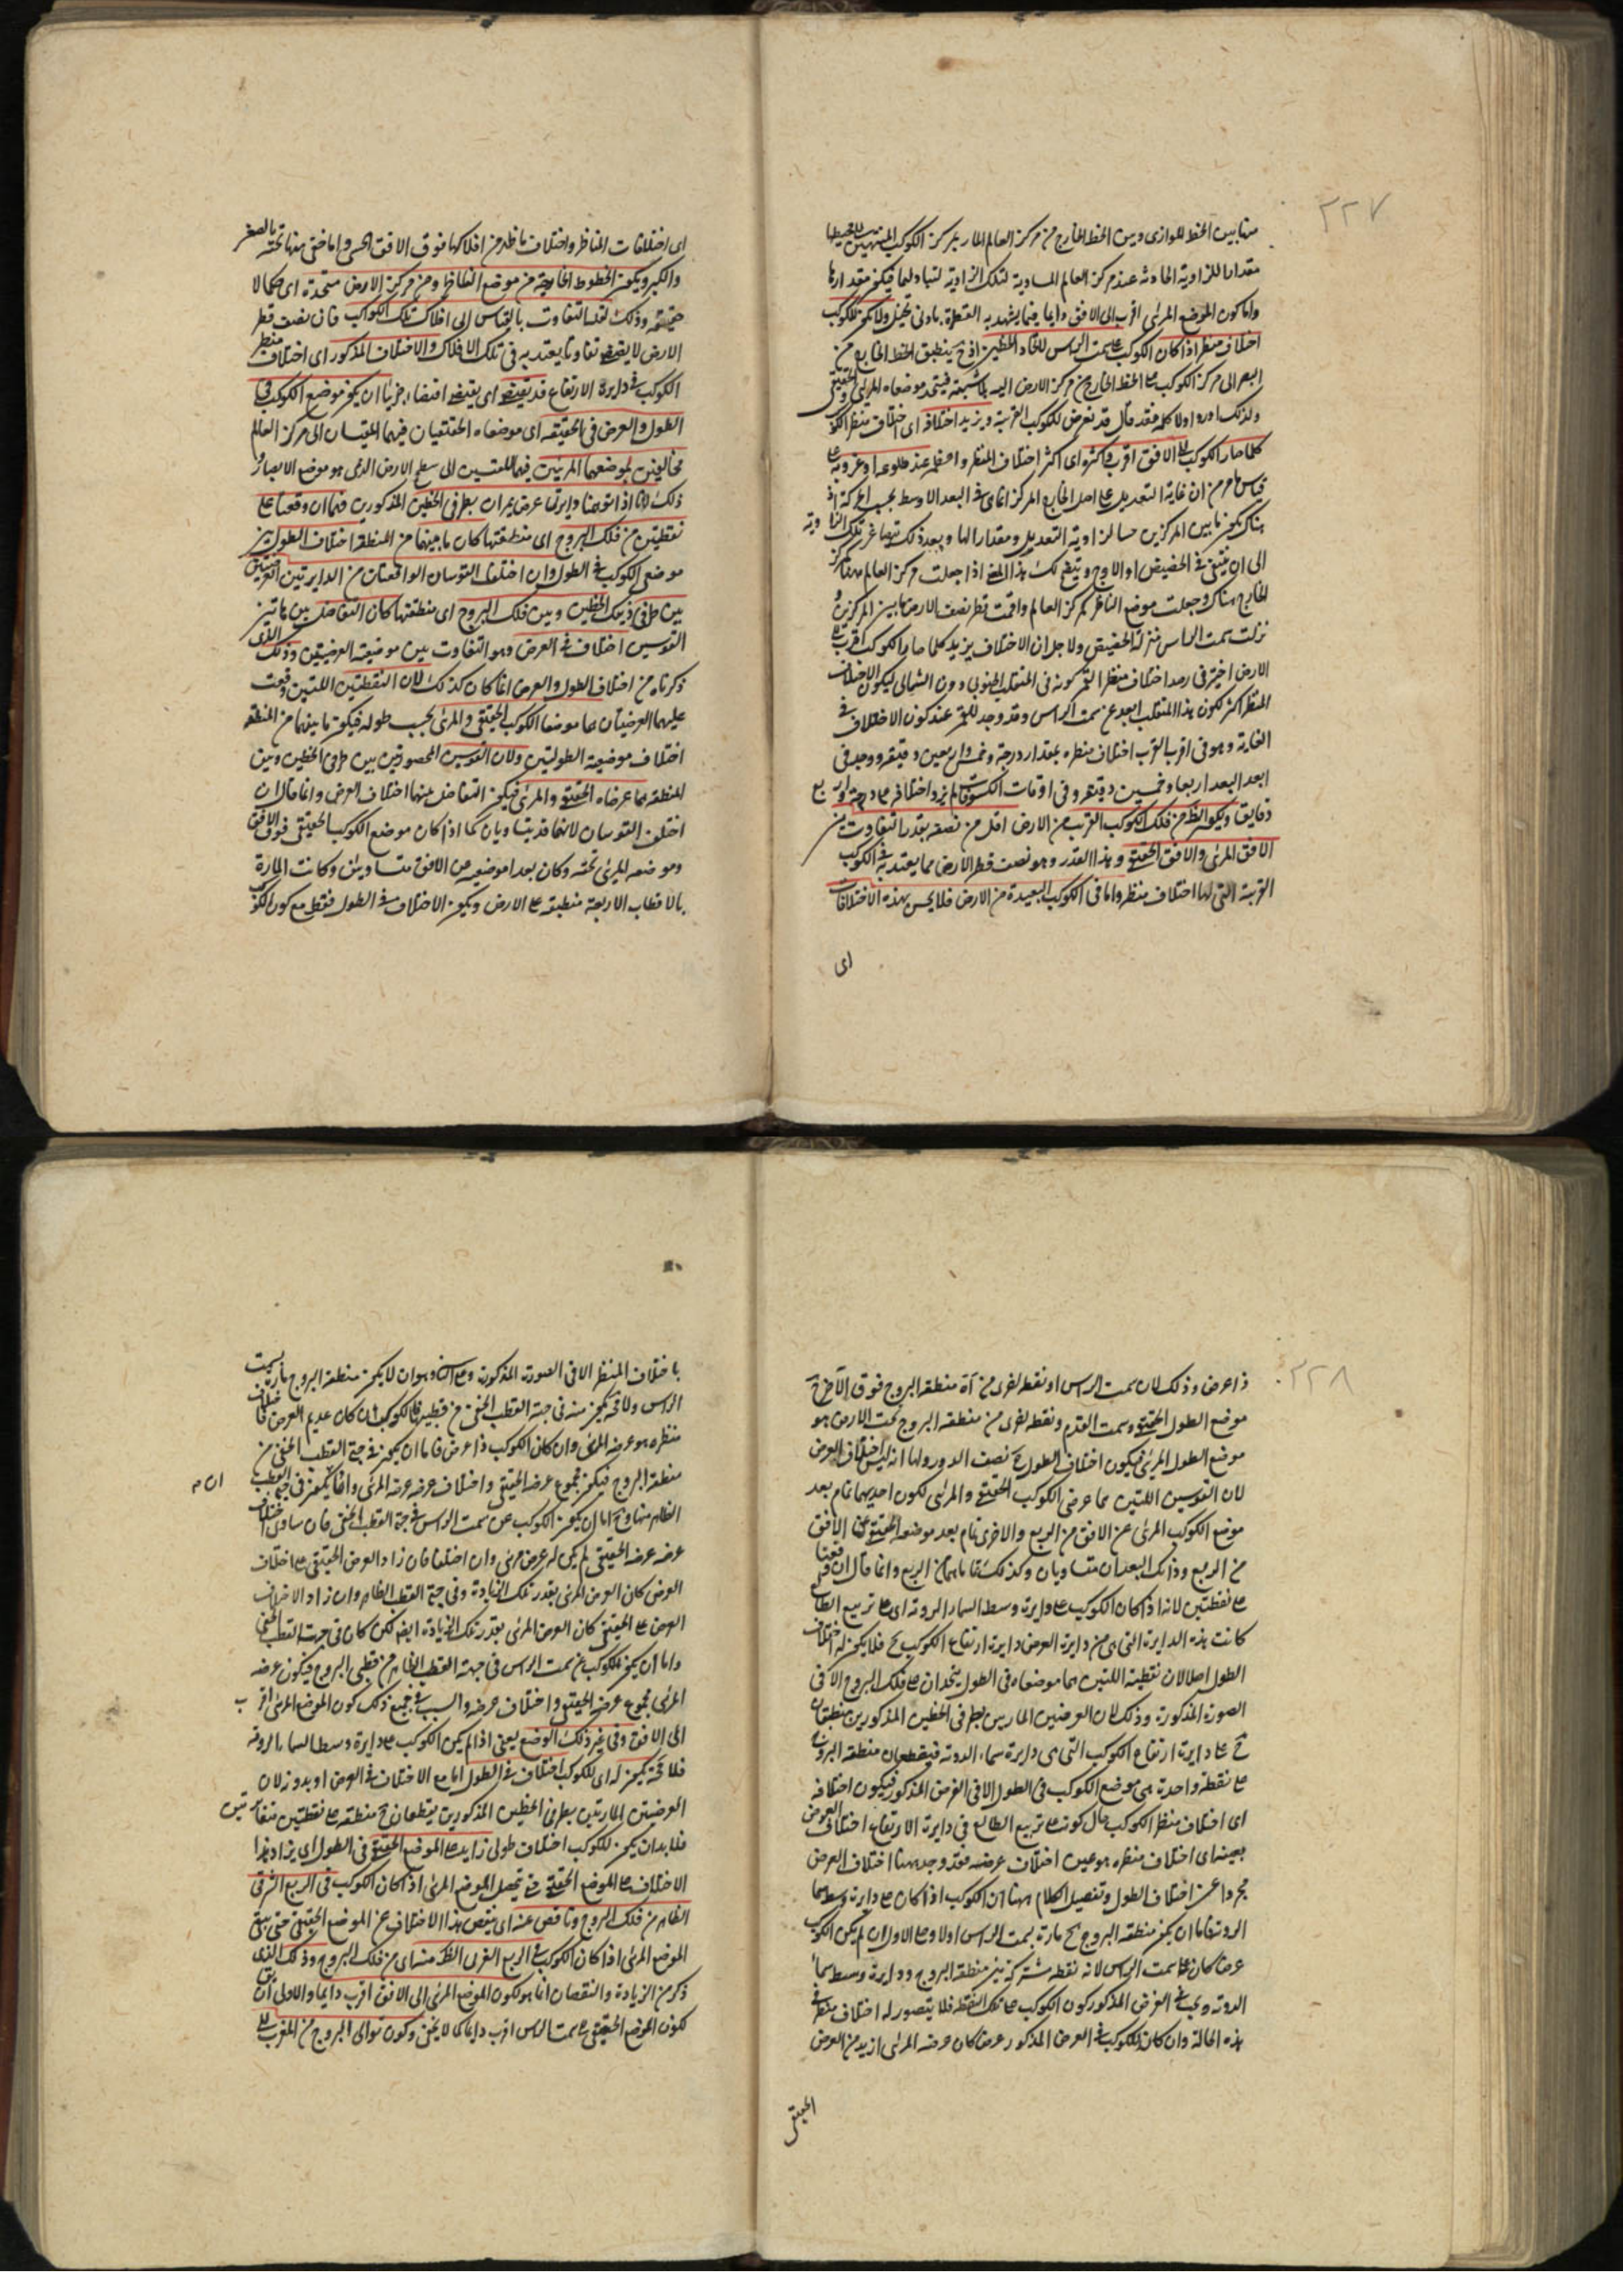 ٣٢٧
ما بين الخط الموازى وبين الخط الخارج من مركز العالم المار بمركز الكوكب المنتهيين
مقدارا للزاوية الحادثة عند مركز العالم المساوية لتلك الزاوية لتبادلهما فيكون مقدارها
واما كون الموضع المرئى اقرب الى الافق دايما فيما يشهد به الفطرة بادنى تخيل ولا يكون للكوكب
اختلاف منظر اذا كان الكوكب على سمت الراس لاتحاد الخطين اذ ح ينطبق الخط الخارج من
البصر الى مركز الكوكب على الخط الخارج من مركز الارض اليه فيتحد موضعاه المرئى والحقيقى
ولذلك اورد اولا كلمة قد فقال قد يعرض للكواكب القريبة ويزيد اختلافه اى اختلاف منظر الكوكب
كلما صار الكوكب الى الافق اقرب اى اكثر اختلاف المنظر واعظمه عند طلوعه او غروبه على
قياس ما مر من ان غاية التعديل على اصل الخارج المركز انما هى فى البعد الاوسط بحسب الحركة اذ
هناك يكون ما بين المركزين مسا لزاوية التعديل ومقدارا لها وبعد ذلك تتصاغر تلك الزاوية
الى ان ينتهى فى الحضيض او الاوج ويتضح لك هذا المعنى اذا جعلت مركز العالم ههنا مركز
الخارج هناك وجعلت موضع الناظر كمركز العالم واقمت قطر نصف الارض ما بين المركزين و
نزلت سمت الراس منزلة الحضيض ولاجل ان الاختلاف يزيد كلما صار الكوكب اقرب الى
الارض اختير فى رصد اختلاف منظر القمر كونه فى المنقلب الجنوبى دون الشمالى ليكون الاختلاف
المنظر اكثر لكون هذا المنقلب ابعد عن سمت الراس وقد وجد للقمر عند كون الاختلاف فى
الغاية وهو فى اقرب القرب اختلاف منظره بمقدار درجة وخمس واربعين دقيقة ووجد فى
ابعد البعد اربعا وخمسين دقيقة وفى اوقات الكسوفات لم يزد اختلافه على درجة واربع
دقايق ويكون الظاهر من فلك الكوكب القريب من الارض اقل من نصفه بقدر التفاوت بين
الافق المرئى والافق الحقيقى وهذا القدر وهو نصف قطر الارض مما يعتد به فى الكوكب
القريبة التى لها اختلاف منظر واما فى الكوكب البعيدة من الارض فلا يحس بهذه الاختلافات
اى
اى اختلافات المناظر واختلاف ما ظهر من افلاكها فوق الافق الحسى واما خفى منها تحته بالصغر
والكبر ويكون الخطوط الخارجة من موضع الناظر ومن مركز الارض متحدة اى حكما لا
حقيقة وذلك لفقد التفاوت بالقياس الى افلاك تلك الكواكب فان نصف قطر
الارض لا يقتضى تفاوتا يعتد به فى تلك الافلاك والاختلاف المذكور اى اختلاف منظر
الكوكب فى دايرة الارتفاع قد يقتضى اى يقتضى اقتضاء جزئيا ان يكون موضع الكوكب فى
الطول والعرض فى الحقيقة اى موضعاه الحقيقيان فيهما المقيسان الى مركز العالم
مخالفين لموضعيهما المرئيين فيهما المقيسين الى سطح الارض الذى هو موضع الابصار و
ذلك لانا اذا توهمنا دايرتى عرض يمران بطرفى الخطين المذكورين فهما ان وقعتا على
نقطتين من فلك البروج اى منطقتها كان ما بينهما من المنطقة اختلاف الطول بين
موضعى الكوكب فى الطول وان اختلفت القوسان الواقعتان من الدايرتين العرضيتين
بين طرفى ذينك الخطين وبين فلك البروج اى منطقتها كان التفاضل بين هاتين
القوسين اختلاف فى العرض وهو التفاوت بين موضعيه العرضيين وذلك الذى
ذكرناه من اختلاف الطول والعرض انما كان كذلك لان النقطتين اللتين وقعت
عليهما العرضيتان هما موضعا الكوكب الحقيقى والمرئى بحسب طوله فيكون ما بينهما من المنطقة
اختلاف موضعيه الطوليين ولان القوسين المحصورتين بين طرفى الخطين وبين
المنطقة هما عرضاه الحقيقى والمرئى فيكون التفاضل بينهما اختلاف العرض وانما قال ان
اختلف القوسان لانهما قد يتساويان كما اذا كان موضع الكوكب الحقيقى فوق الافق
وموضعه المرئى تحته وكان بعدا موضعيه من الافق متساويين وكانت المارة
بالاقطاب الاربعة منطبقة على الارض ويكون الاختلاف فى الطول فقط مع كون الكوكب
٣٢٨
ذا عرض وذلك لان سمت الراس او نقطة اخرى من منطقة البروج فوق الارض ح
موضع الطول الحقيقى وسمت القدم ونقطة اخرى من منطقة البروج تحت الارض هو
موضع الطول المرئى فيكون اختلاف الطول ح نصف الدور ولها انه ليس اختلاف العرض
لان القوسين اللتين هما عرضى الكوكب الحقيقى والمرئى لكون احديهما تمام بعد
موضع الكوكب المرئى عن الافق من الربع والاخرى تمام بعد موضعه الحقيقى عن الافق
من الربع وذانك البعدان متساويان وكذلك تماماهما من الربع وانما قال ان وقعتا
على نقطتين لانه اذا كان الكوكب على دايرة وسط السماء الروية اى على تربيع الطالع
كانت هذه الدايرة التى هى من دايرة العرض دايرة ارتفاع الكوكب ح فلا يكون له اختلاف
الطول اصلا لان نقطتيه اللتين هما موضعاه فى الطول يتحدان على فلك البروج الا فى
الصورة المذكورة وذلك لان العرضيتين المارتين بطرفى الخطين المذكورين منطبقتان
ح على دايرة ارتفاع الكوكب التى هى دايرة سماء الروية فيقطعان منطقة البروج
على نقطة واحدة هى موضع الكوكب فى الطول الا فى الفرض المذكور فيكون اختلافه
اى اختلاف منظر الكوكب حال كونه على تربيع الطالع فى دايرة الارتفاع اختلاف العرض
بعينه اى اختلاف منظره هو عين اختلاف عرضه فقد وجد ههنا اختلاف العرض
مجردا عن اختلاف الطول وتفصيل الكلام ههنا ان الكوكب اذا كان على دايرة وسط سماء
الروية فاما ان يكون منطقة البروج ح مارة بسمت الراس اولا وعلى الاول ان لم يكن للكوكب
عرض كان على سمت الراس لانه نقطة مشتركة بين منطقة البروج ودايرة وسط سماء
الروية ويجب فى الفرض المذكور كون الكوكب على تلك النقطة فلا يتصور له اختلاف منظر فى
هذه الحالة وان كان للكوكب فى الفرض المذكور عرض كان عرضه المرئى ازيد من العرض
الحقيقى
باختلاف المنظر الا فى الصورة المذكورة وعلى الثانى وهو ان لا يكون منطقة البروج مارة بسمت
الراس ولا محة يكون منه فى جهة القطب الخفى من قطبيها فالكوكب ان كان عديم العرض فاختلاف
منظره هو عرضه المرئى وان كان الكوكب ذا عرض فاما ان يكون فى جهة القطب الخفى من
منطقة البروج فيكون مجموع عرضه الحقيقى واختلاف عرضه عرضه المرئى واما ان يكون فى جهة القطب
ان م
الظاهر منها وح اما ان يكون الكوكب عن سمت الراس فى جهة القطب الخفى فان ساوى اختلاف
عرضه عرضه الحقيقى لم يكن له عرض مرئى وان اختلفا فان زاد العرض الحقيقى على اختلاف
العرض كان العرض المرئى بقدر تلك الزيادة وفى جهة القطب الظاهر وان زاد الاختلاف
العرض على الحقيقى كان العرض المرئى بقدر تلك الزيادة ايضا لكن كان فى جهة القطب الخفى
واما ان يكون للكوكب عن سمت الراس فى جهة القطب الظاهر من قطبى البروج فيكون عرضه
المرئى مجموع عرضه الحقيقى واختلاف عرضه والسبب فى جميع ذلك كون الموضع المرئى اقرب
الى الافق وفى غير ذلك الوضع يعنى اذا لم يكن الكوكب على دايرة وسط السماء الروية
فلا محة يكون له اى للكوكب اختلاف فى الطول اما مع الاختلاف فى العرض او بدونه لان
العرضيتين المارتين بطرفى الخطين المذكورين يتقطعان ح منطقة على نقطتين متغايرتين
فلا بد ان يكون للكوكب اختلاف طولى زايد على الموضع الحقيقى فى الطول اى يزاد هذا
الاختلاف على الموضع الحقيقى حتى يحصل الموضع المرئى اذا كان الكوكب فى الربع الشرقى
الظاهر من فلك البروج وناقص عنه اى ينقص هذا الاختلاف عن الموضع الحقيقى حتى يبقى
الموضع المرئى اذا كان الكوكب فى الربع الغربى الظاهر منه اى من فلك البروج وذلك الذى
ذكر من الزيادة والنقصان انما هو لكون الموضع المرئى الى الافق اقرب دايما والاولى ان يق
لكون الموضع الحقيقى الى سمت الراس اقرب دايما كما لا يخفى وكون توالى البروج من المغرب الى